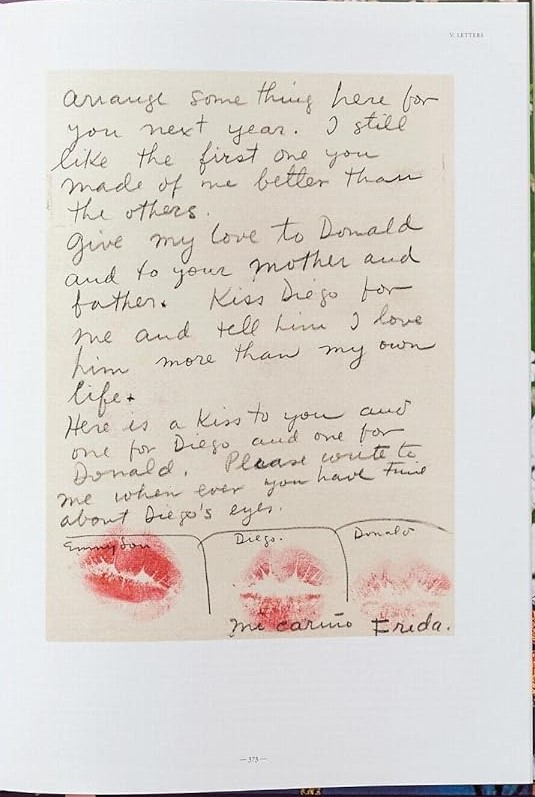 V. LETTERS
arrange some thing here for
you next year. I still
like the first one you
made of me better than
the others.
Give my love to Donald
and to your mother and
father. Kiss Diego for
me and tell him I love
him more than my own
life.
Here is a Kiss to you and
one for Diego and one for
Donald. Please write to
me when ever you have time
about Diego's eyes.
Emmy Lou Diego. Donald
Mi cariño Frida.
—373—